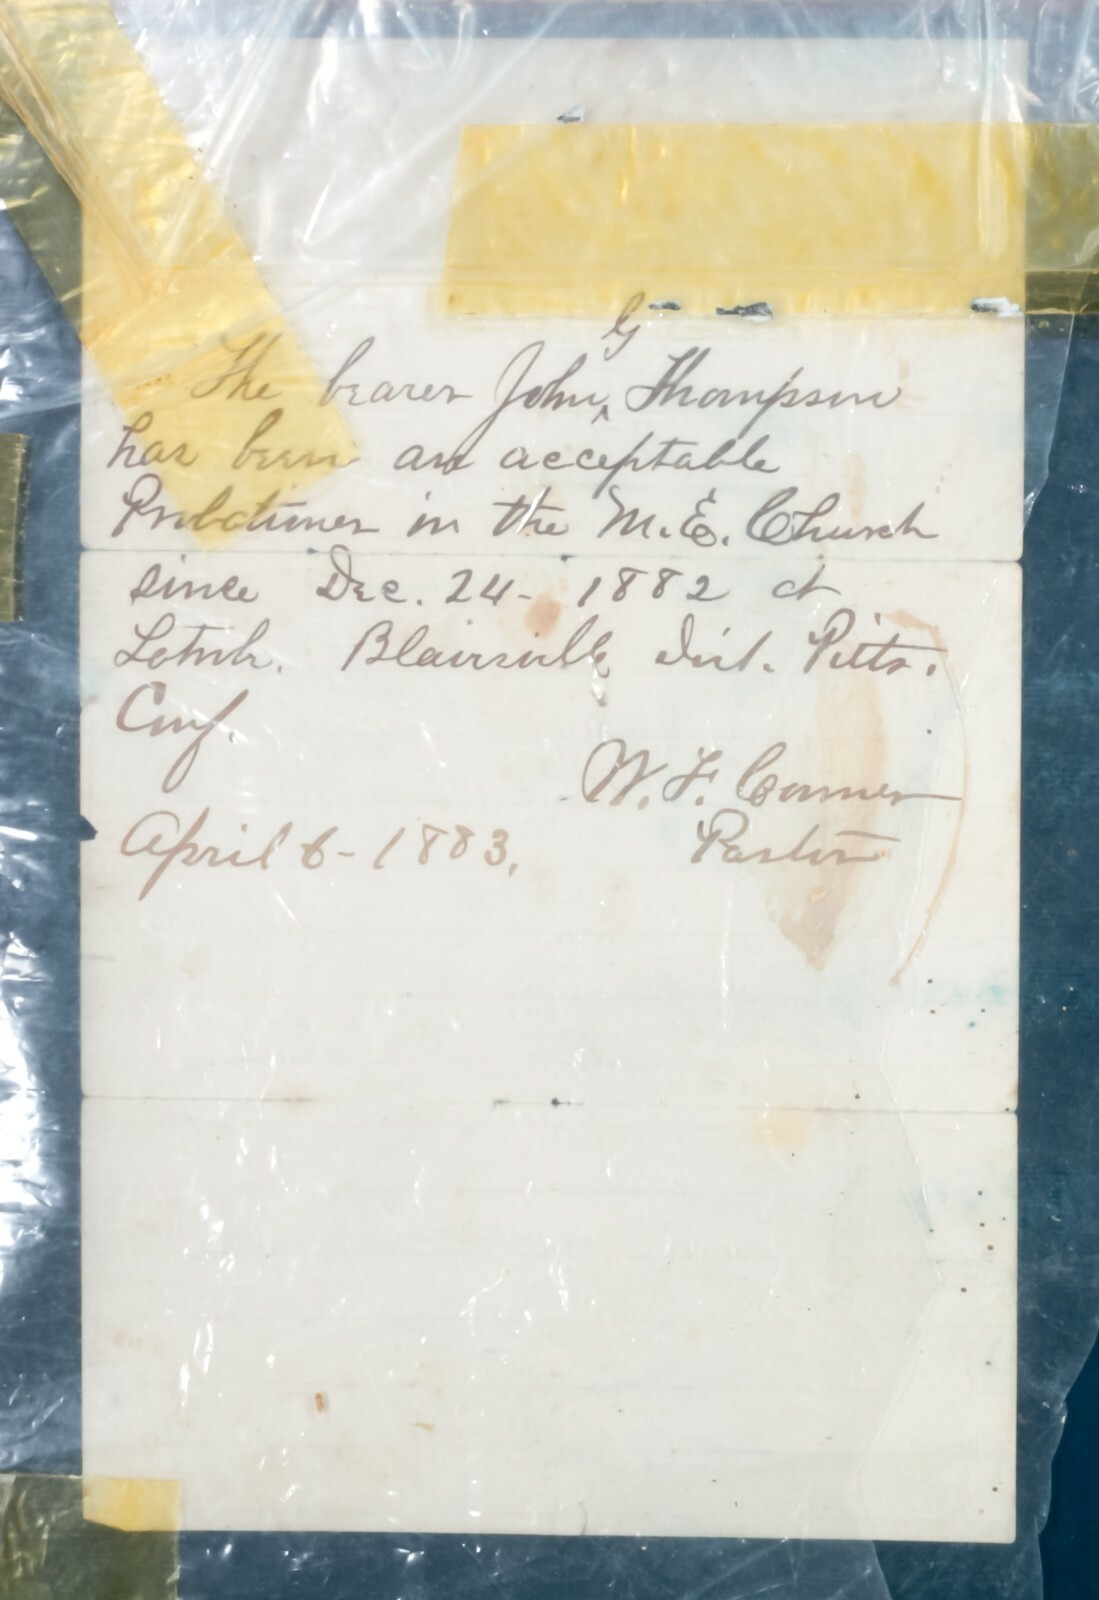 The bearer John G Thompson
has been an acceptable
Probationer in the M.E. Church
since Dec. 24 - 1882 at
Latrobe. Blairsville Dist. Pitts.
Conf.
W. F. Conner
Pastor
April 6 - 1883.